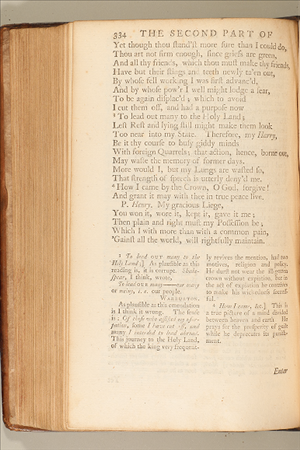 334 THE SECOND PART OF
Yet though thou ſtand'ſt more ſure than I could do,
Thou art not firm enough, ſince griefs are green,
And all thy friends, which thou muſt make thy friends,
Have but their ſtings and teeth newly ta'en out,
By whoſe fell working I was firſt advanc'd,
And by whoſe pow'r I well might lodge a fear,
To be again diſplac'd; which to avoid
I cut them off, and had a purpoſe now
To lead out many to the Holy Land;
Leſt Reſt and lying ſtill might make them look
Too near into my State. Therefore, my Harry,
Be it thy courſe to buſy giddy minds
With foreign Quarrels; that action, hence, borne out,
May waſte the memory of former days.
More would I, but my Lungs are waſted ſo,
That ſtrength of ſpeech is utterly deny'd me.
How I came by the Crown, O God, forgive!
And grant it may with thee in true peace live.
P. Henry. My gracious Liege,
You won it, wore it, kept it, gave it me;
Then plain and right muſt my Poſſeſſion be;
Which I with more than with a common pain,
'Gainſt all the world, will rightfully maintain.
To lead OUT many to the
Holy Land;] As plauſible as this
reading is, it is corrupt.
I think, wrote,
or
i. e. our people.
WARBURTON.
As plauſible as this emendation
is I think it wrong. The ſenſe
is:
ſome I have cut off, and
many I intended to lead abroad.
This journey to the Holy Land,
of which the king very frequent-
ly revives the mention, had two
motives, religion and policy.
He durſt not wear the ill-gotten
crown without expiation, but in
the act of expiation he contrives
to make his wickedneſs ſucceſſ-
ful.
How I came, &c.] This is
a true picture of a mind divided
between heaven and earth. He
prays for the proſperity of guilt
while he deprecates its puniſh-
ment.
Enter